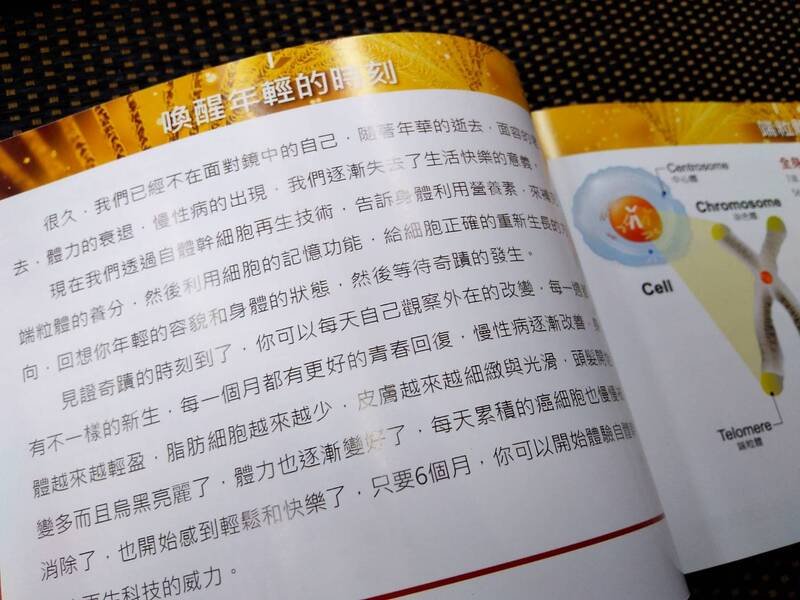 喚醒年輕的時刻
很久，我們已經不在面對鏡中的自己，隨著年華的逝去，面容的
去，體力的衰退，慢性病的出現，我們逐漸失去了生活快樂的意義，
現在我們透過自體幹細胞再生技術，告訴身體利用營養素，來補充
端粒體的養分，然後利用細胞的記憶功能，給細胞正確的重新生長的方
向，回想你年輕的容貌和身體的狀態，然後等待奇蹟的發生。
見證奇蹟的時刻到了，你可以每天自己觀察外在的改變，每一週
有不一樣的新生，每一個月都有更好的青春回復，慢性病逐漸改善，身
體越來越輕盈，脂肪細胞越來越少，皮膚越來越細緻與光滑，頭髮開始
變多而且烏黑亮麗了，體力也逐漸變好了，每天累積的癌細胞也慢慢
消除了，也開始感到輕鬆和快樂了，只要6個月，你可以開始體驗自體
再生科技的威力。
端粒
Centrosome
中心體
Chromosome
染色體
Cell
Telomere
端粒體